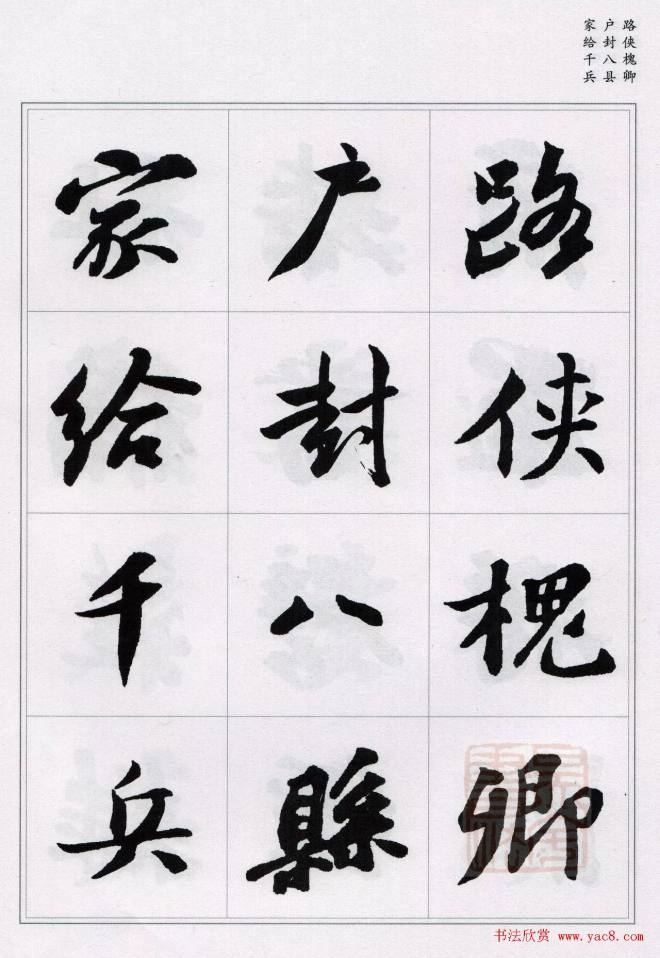 路侠槐卿
户封八县
家给千兵
路侠槐卿
户封八縣
家给千兵
书法欣赏 www.yac8.com